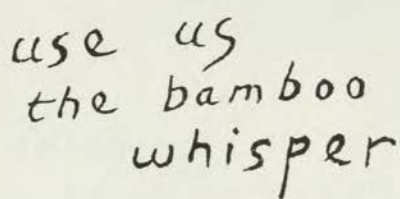 use us
the bamboo
whisper